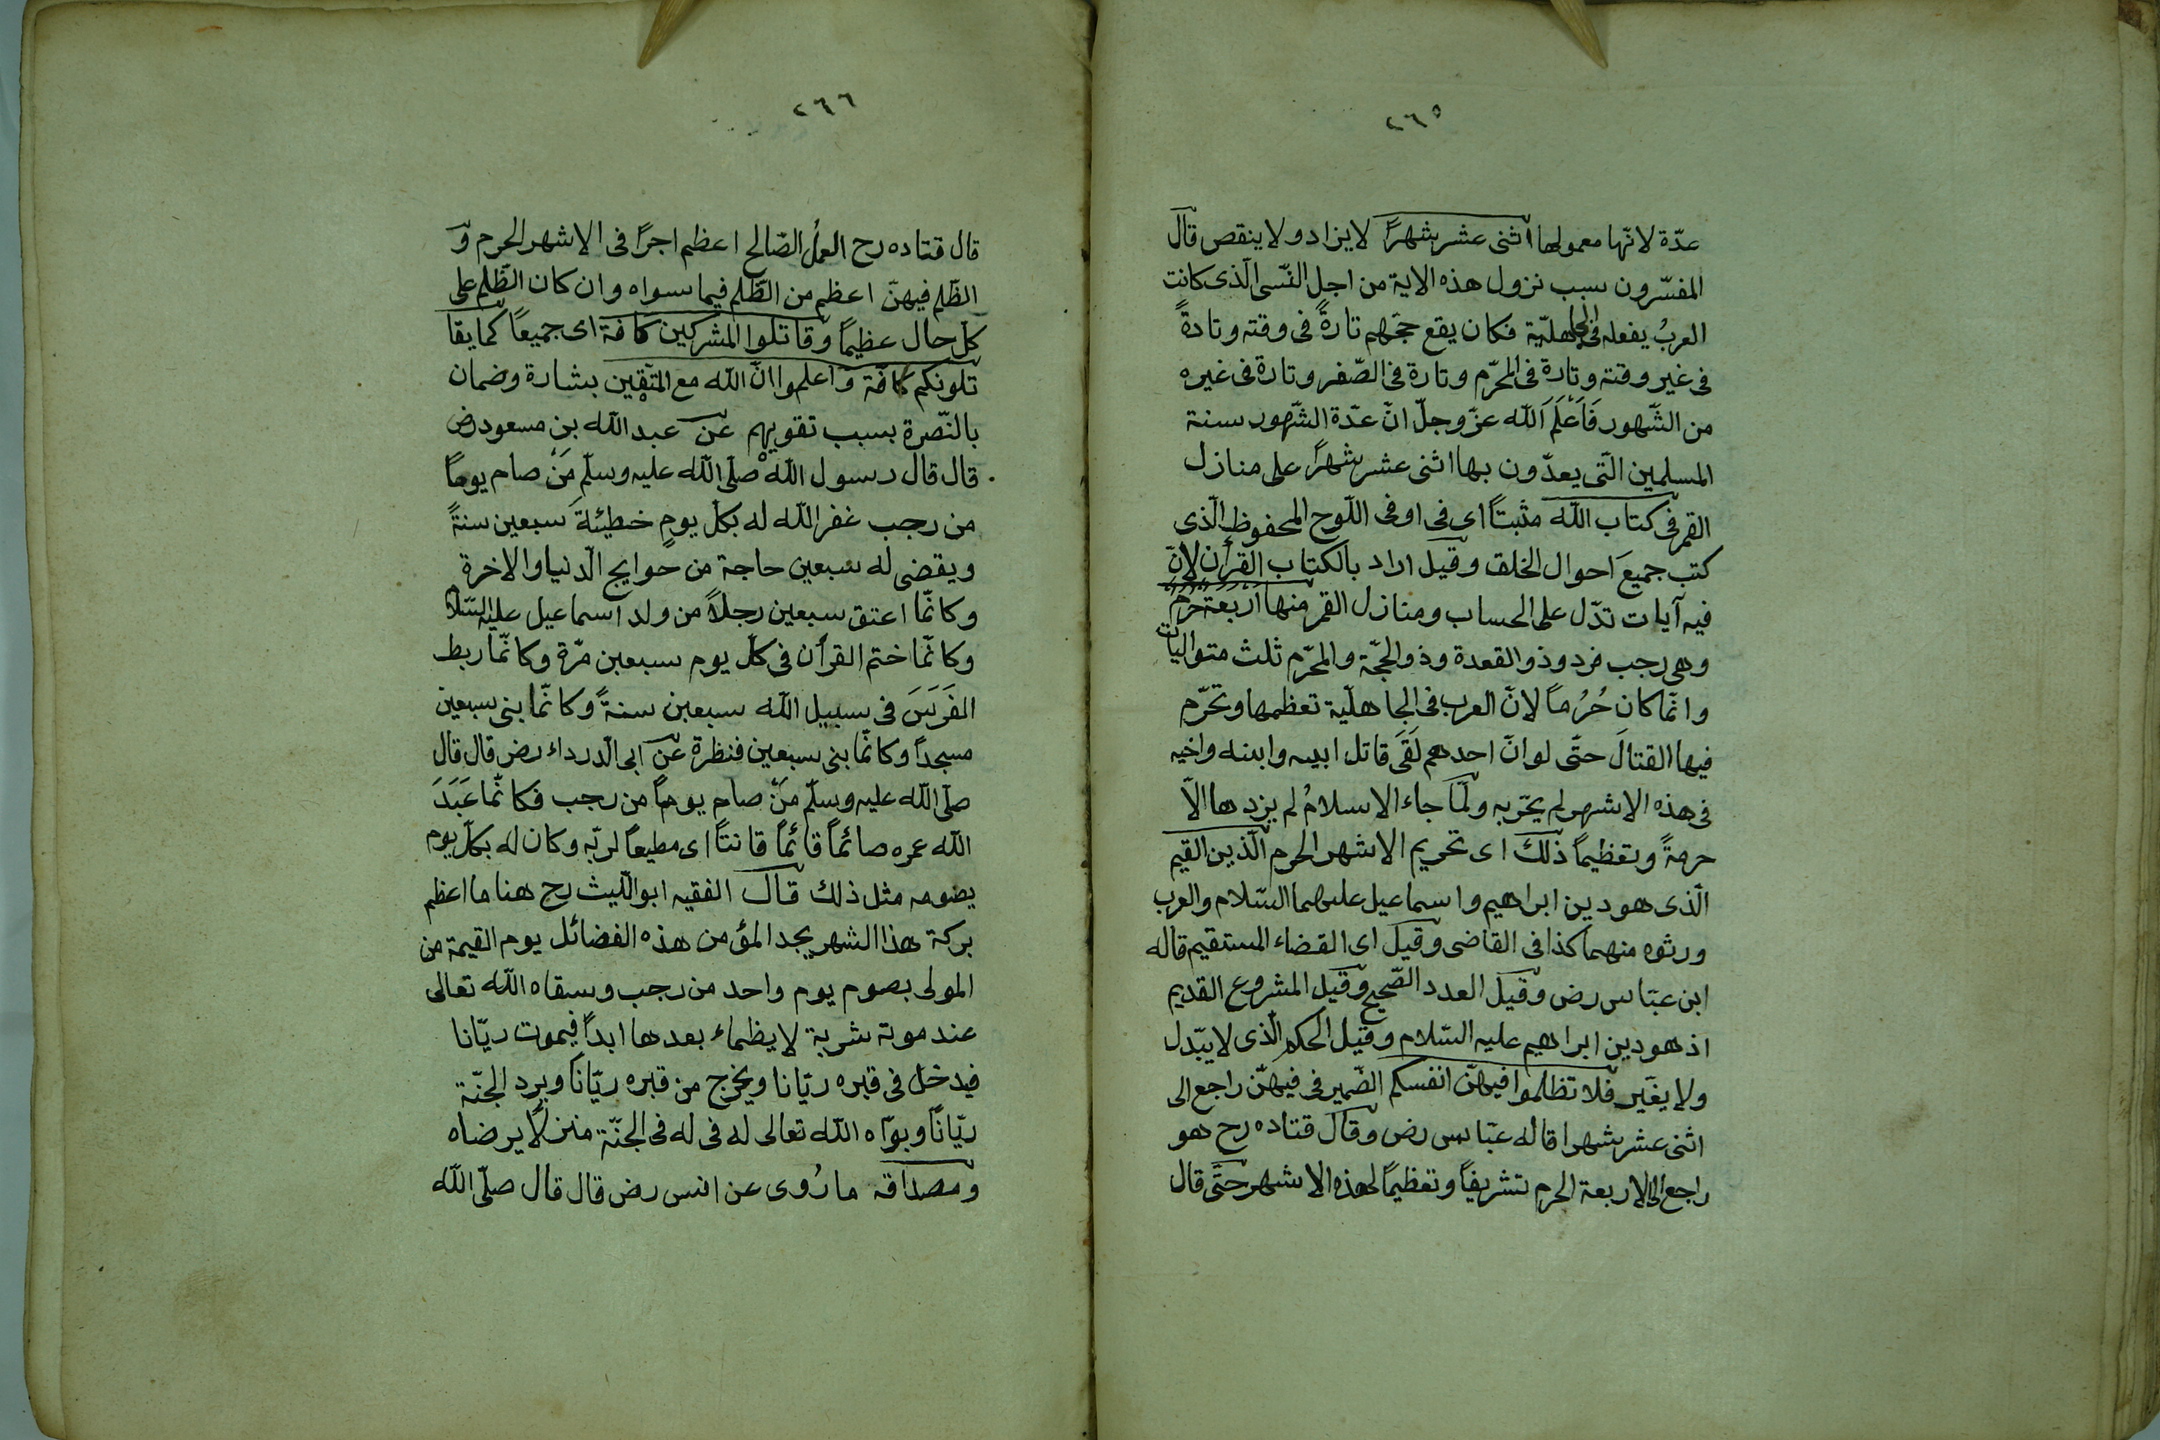 ٢٦٥
عدّة لانّها معمولها اثنى عشر شهرًا لا يزاد ولا ينقص قال
المفسّرون سبب نزول هذه الاية من اجل النّسى الّذى كانت
العربُ يفعله فى الجاهليّة فكان يقع حجّهم تارةً فى وقته وتارةً
فى غير وقته وتارة فى المحرّم وتارة فى الصّفر وتارة فى غيره
من الشّهور فَاَعْلَمَ اللّه عزّ وجلّ انّ عدّة الشّهور سنة
المسلمين الّتى يعدّون بها اثنى عشر شهرًا على منازل
القمر فى كتاب اللّه مثبتًا اى فى او فى اللّوح المحفوظ الّذى
كتب جميعَ احوال الخلق وقيل اراد بالكتاب القرأن لانّ
فيه آيات تدّل على الحساب ومنازل القمر منها اَرْبَعَةٌ حُرُمٌ
وهى رجب فرد وذو القعدة وذو الحجّة والمحرّم ثلث متواليات
وانّما كان حُرُمًا لانّ العرب فى الجاهليّة تعظمها وتحرّم
فيها القتالَ حتّى لو انّ احدهم لَقَى قاتل ابيه وابنه واخيه
فى هذه الاشهر لم يحرّبه ولمّا جاء الاسلامُ لم يزدها الاّ
حرمةً وتعظيمًا ذلك اى تحريم الاشهر الحرم الّذين القيم
الّذى هو دين ابراهيم واسماعيل عليهما السّلام والعرب
ورثوه منهما كذا فى القاضى وقيل اى القضاء المستقيم قاله
ابن عبّاس رض وقيل العدد الصّحيح وقيل المشروع القديم
اذ هو دين ابراهيم عليه السّلام وقيل الحكم الّذى لا يبّدل
ولا يغيّر فلا تظلموا فيهنّ انفسكم الضّمير فى فيهنّ راجع الى
اثنى عشر شهرا قاله عبّاس رض وقال قتاده رح هو
راجع الى الاربعة الحرم تشريفًا وتعظيمًا لهذه الاشهر حتّى قال
٢٦٦
قال قتاده رح العملُ الصّالح اعظم اجرًا فى الاشهر الحرم و
الظّلم فيهنّ اعظم من الظّلم فيما سواه وان كان الظّلم على
كلّ حال عظيمًا وقاتلوا المشركين كافة اى جميعًا كما يقا
تلونكم كافّة واعلموا انّ اللّه مع المتّقين بشارة وضمان
بالنّصرة بسبب تقويهم عن عبد اللّه بن مسعود رض
قال قال رسول اللّه صلّى اللّه عليه وسلّم مَنْ صام يومًا
من رجب غفر اللّه له بكلّ يومٍ خطيئةَ سبعين سنةً
ويقضى له سبعين حاجة من حوايج الّدنيا والاخرة
وكانّما اعتق سبعين رجلاً من ولد اسماعيل عليه السّلام
وكانّما ختم القرأن فى كلّ يوم سبعين مرّة وكانّما ربط
الفَرَسَ فى سبيل اللّه سبعين سنةً وكانّما بنى سبعين
مسجدًا وكانّما بنى سبعين فنظرة عن ابى الّدرداء رض قال قال
صلّى اللّه عليه وسلّم مَنْ صام يومًا من رجب فكانّما عَبَدَ
اللّه عمره صائمًا قائمًا قانتًا اى مطيعًا لربّه وكان له بكلّ يوم
يصومه مثل ذلك قال الفقيه ابو الّليث رح هنا ما اعظم
بركة هذا الشهر يجد المؤمن هذه الفضائل يوم القيمة من
المولى بصوم يوم واحد من رجب وسقاه اللّه تعالى
عند موته شربة لا يظماء بعدها ابدًا فيموت ريّانا
فيدخل فى قبره ريّانا ويخرج من قبره ريّانا ويرد الجنّة
ريّانًا وبوّاه اللّه تعالى له فى له فى الجنّة منزلًا يرضاه
ومصداقه ما رُوى عن انس رض قال قال صلّى اللّه